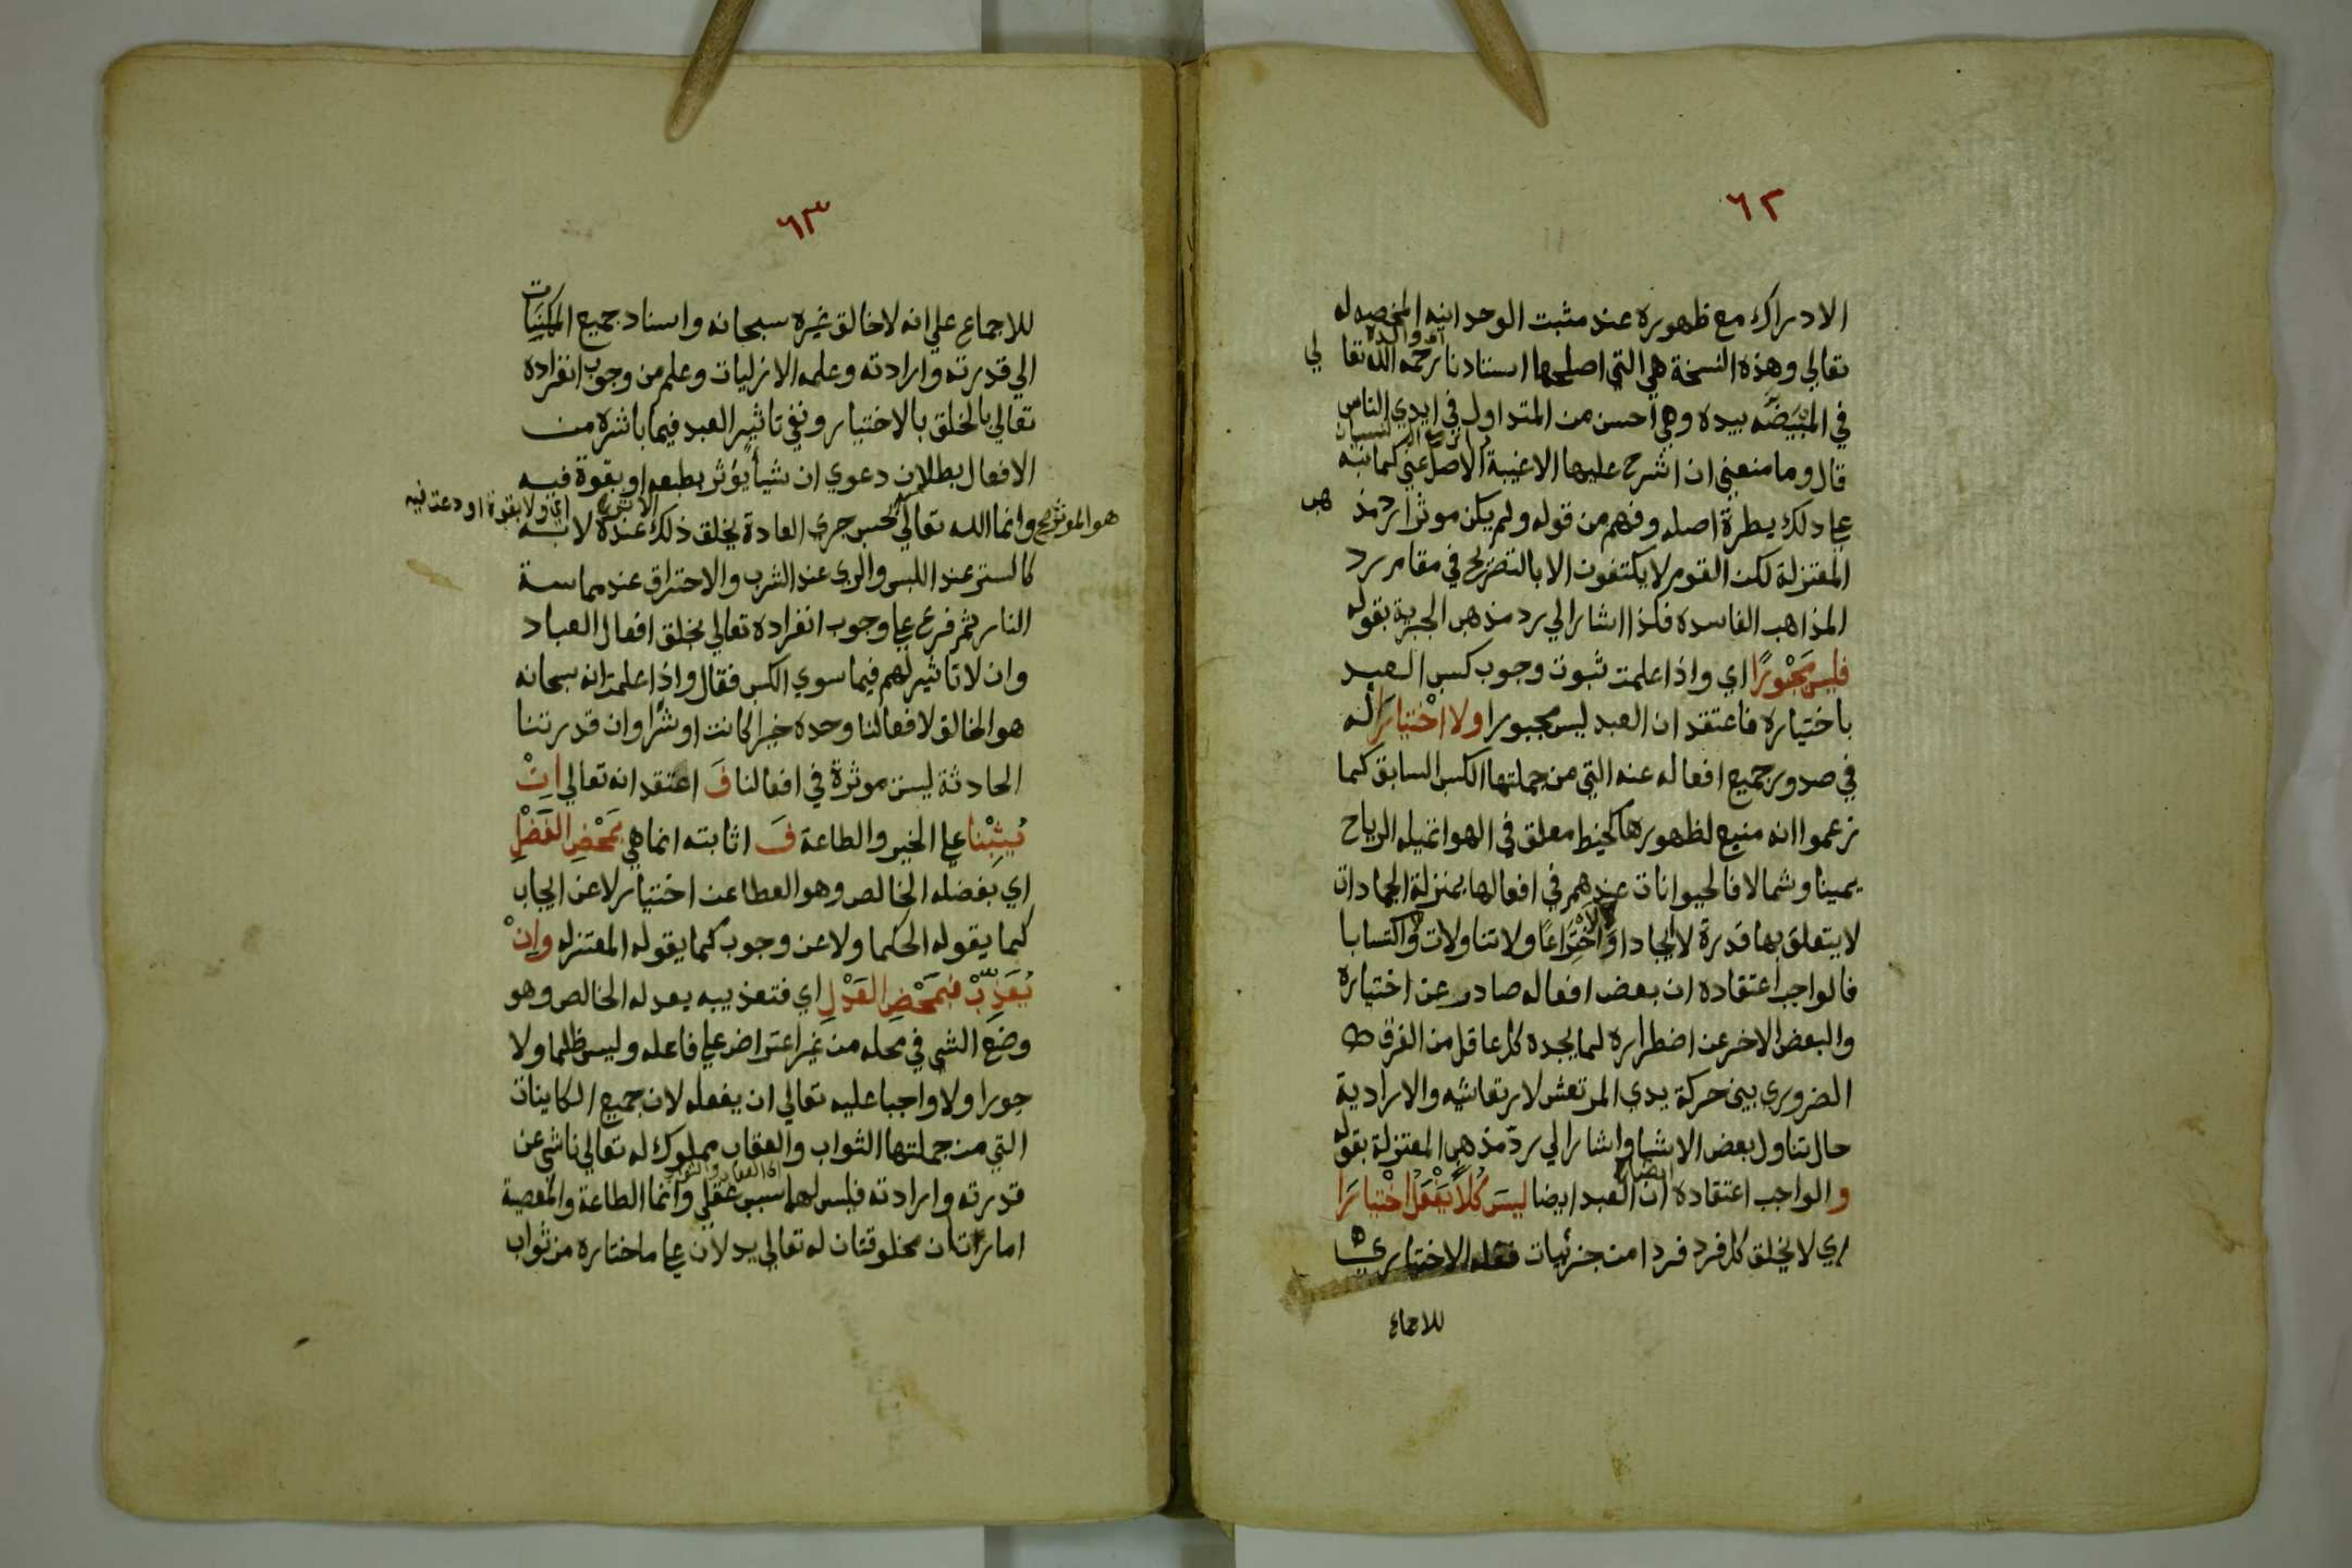 ٦٢
الادراك مع ظهوره عند مثبت الوحدانيه المخصصه له
تعالي وهذه النسخة هي التي اصلحها استادنا رحمه الله تعالي
في المبيضه بيده وهي احسن من المتداول في ايدي الناس
قال وما منعني ان اشرح عليها الاغيبة الاصل عني كما نبه
علي ذلك بطرة اصله وفهم من قوله ولم يكن موثرا رد مذهب
المعتزلة لكن القوم لا يكتفون الا بالتصريح في مقام رد
المذاهب الفاسده فلذا اشار الي رد مذهب الجبرية بقوله
فليس مَجْبُورًا اي واذا علمت ثبوت وجوب كسب العبد
باختياره فاعتقد ان العبد ليس مجبورا ولا اخْتِيَارَا له
في صدور جميع افعاله عنه التي من جملتها الكسب السابق كما
زعموا انه منيع لظهورها كخيط معلق في الهوا تميله الرياح
يمينا وشمالا فالحيوانات عندهم في افعالها بمنزلة الجمادات
لا يتعلق بها قدرة لا ايجادا ولا اخْتِرَاعًا ولا تناولا ولا اكتسابا
فالواجب اعتقاده ان بعض افعاله صادر عن اختياره
والبعض الاخر عن اضطراره لما يجده كل عاقل من الفرق
الضروري بين حركة يدي المرتعش لارتعاشه والارادية
حال تناول بعض الاشيا واشار الي رد مذهب المعتزلة بقوله
والواجب اعتقاده ان العبد ايضا ليسَ كُلاًّ يَفْعَلُ اخْتِيَارَا
اي لا يخلق كل فرد فردا من جزئيات فعله الاختياري
للاجماع
٦٣
للاجماع علي انه لا خالق غيره سبحانه واسناد جميع الممكنات
الي قدرته وارادته وعلمه الازليات وعلم من وجوب انفراده
تعالي بالخلق بالاختيار ونفي تاثير العبد فيما باشره من
الافعال بطلان دعوي ان شيأ يؤثر بطبعه او بقوة فيه
وانما الله تعالي هو الموثر صح بحسب جري العادة يخلق ذلك الاثر عنده لا به اي ولا بقوة اودعت فيه
كالستر عند اللبس والري عند الشرب والاحتراق عند مماسة
النار ثم فرع علي وجوب انفراده تعالي بخلق افعال العباد
وان لا تاثير لهم فيما سوي الكسب فقال واذا علمت انه سبحانه
هو الخالق لافعالنا وحده خيرا كانت او شرا وان قدرتنا
الحادثة ليست موثرة في افعالنا فَ اعتقد انه تعالي اِنْ
يُثِبْنا علي الخير والطاعة فَ اثابته انما هي بمَحْضِ الفَضْلِ
اي بفضله الخالص وهو العطا عن اختيار لا عن ايجاب
كما يقوله الحكما ولا عن وجوب كما يقوله المعتزله واِنْ
يُعَذِّبْ فبمَحْضِ العَدْلِ اي فتعذيبه بعدله الخالص وهو
وضع الشي في محله من غير اعتراض علي فاعله وليس ظلما ولا
جورا ولا واجبا عليه تعالي ان يفعله لان جميع الكاينات
التي من جملتها الثواب والعقاب مملوك له تعالي ناشي عن
قدرته وارادته فليس لهما اي العقاب والثواب سبب عقلي وانما الطاعة والمعصية
امارتان مخلوقتان له تعالي يدلان علي ما اختاره من ثواب